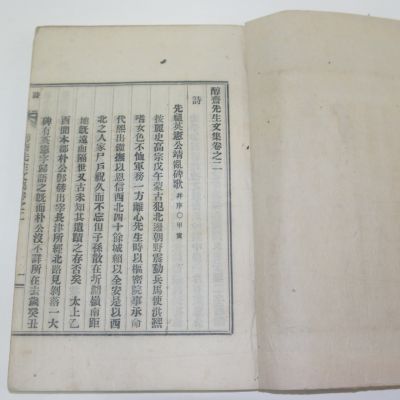 醇齋先生文集卷之二
詩
先祖英憲公靖亂碑歌 幷序○甲寅
按麗史高宗戊午蒙古犯北邊朝野震動兵馬使洪熙
嗜女色不恤軍務一方離心先生時以樞密院事承命
代熙出鎭撫以恩信西北四十餘城賴以全安是以西
北之人家尸戶祝久而不忘但子孫散在圻湖嶺南距
地旣遠而隔世又古未知其遺蹟之存否矣 太上乙
酉聞本郡朴公 出宰長津所經北路見剝落一大
碑有英憲字歸語之旣而朴公沒不詳所在去歲癸丑